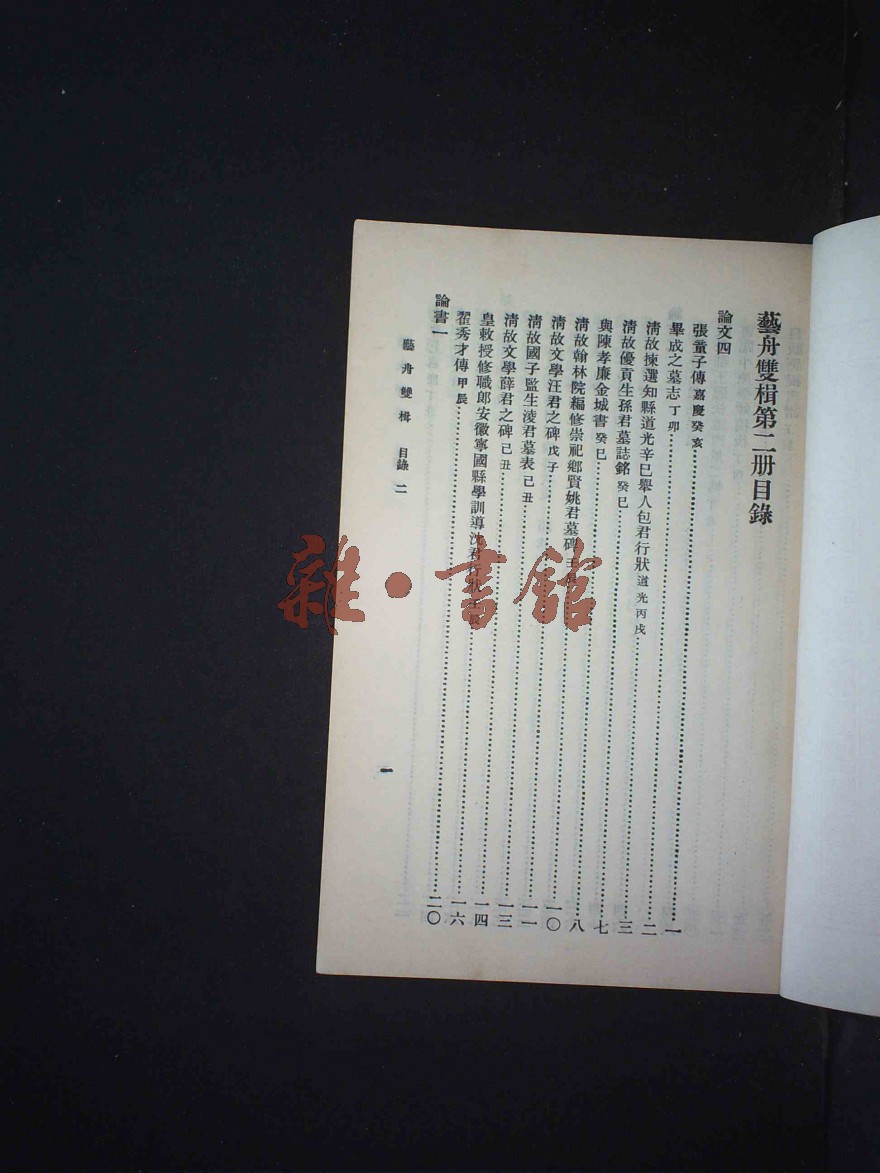 藝舟雙楫第二册目錄
論文四
張童子傳 嘉慶癸亥
畢成之墓志 丁卯……一
清故揀選知縣道光辛巳舉人包君行狀 道光丙戌……二
清故優貢生孫君墓誌銘 癸巳……三
與陳孝廉金城書 癸巳……七
清故翰林院編修崇祀鄉賢姚君墓碑……八
清故文學汪君之碑 戊子……一〇
清故國子監生淩君墓表 己丑……一一
清故文學薛君之碑 己丑……一三
皇敕授修職郎安徽寧國縣學訓導沈君行狀……一四
翟秀才傳 甲辰……一六
論書一……二〇
藝舟雙楫 目錄 二
一
雜·書館